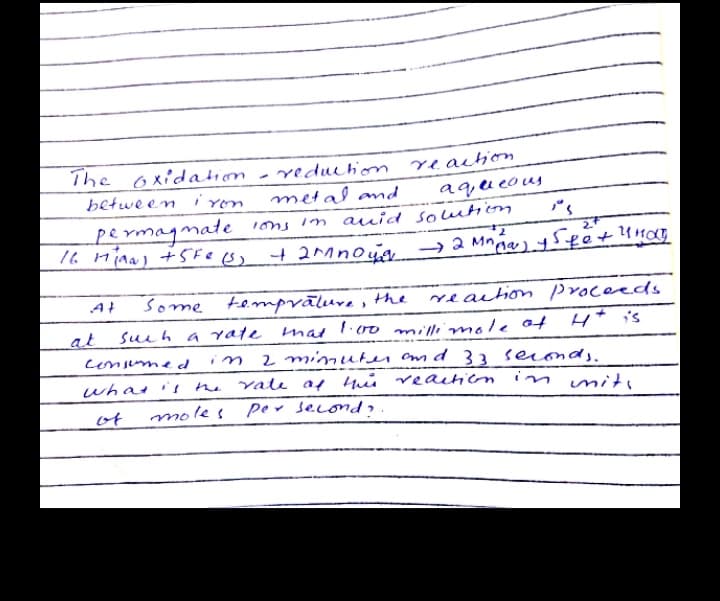 The oxidation - reduction reaction
between iron metal and aqueous
permagnate ions in acid solution is
16 H⁺(aq) + 5Fe(s) + 2MnO₄⁻(aq) → 2 Mn⁺²(aq) + 5Fe²⁺ +
At some temprature, the reaction proceeds
at such a rate that 1.00 millimole of H⁺ is
consumed in 2 minutes and 33 seconds.
what is the rate of this reaction in units
of moles per second?.